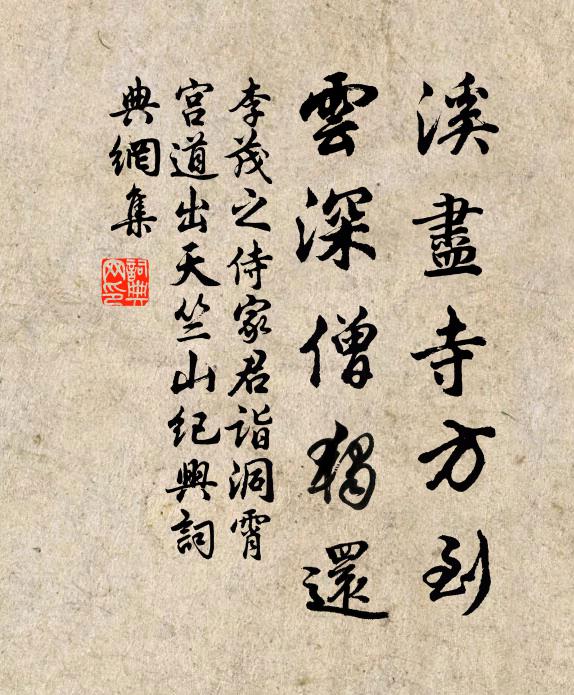 溪盡寺方到
雲深僧獨還
李茂之侍家君詣洞霄
宮道出天竺山紀興詞
典網集
詞典網印